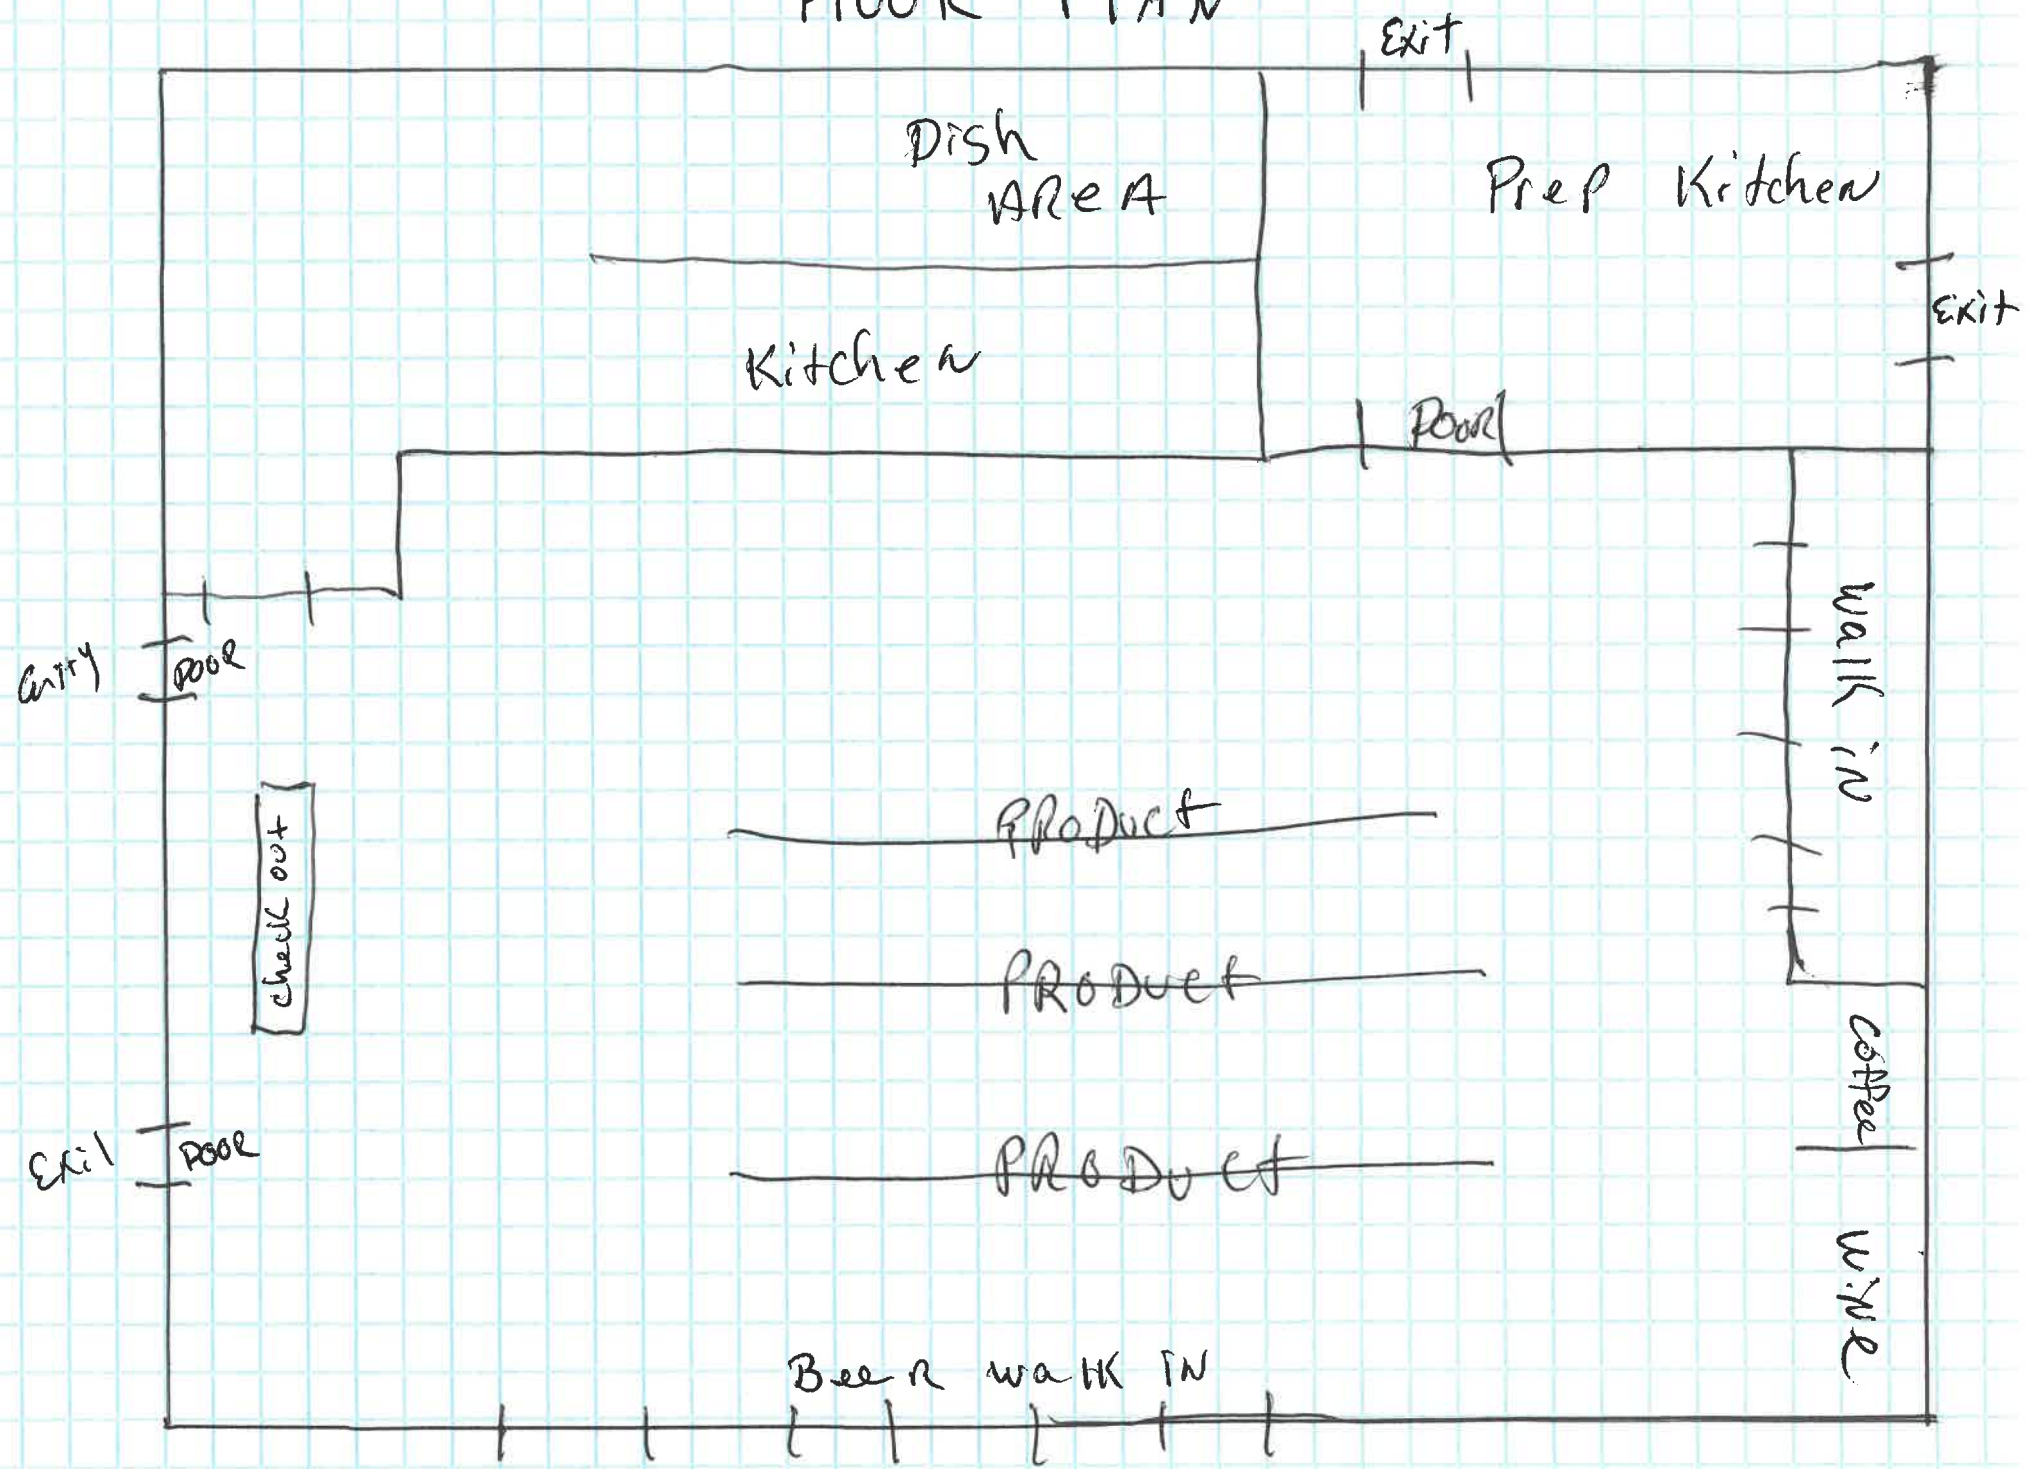 Floor Plan
Exit
Dish
Area
Prep Kitchen
Exit
Kitchen
Door
Walk in
Entry
Door
Product
Check out
Product
Coffee
Exit
Door
Product
Wine
Beer walk in